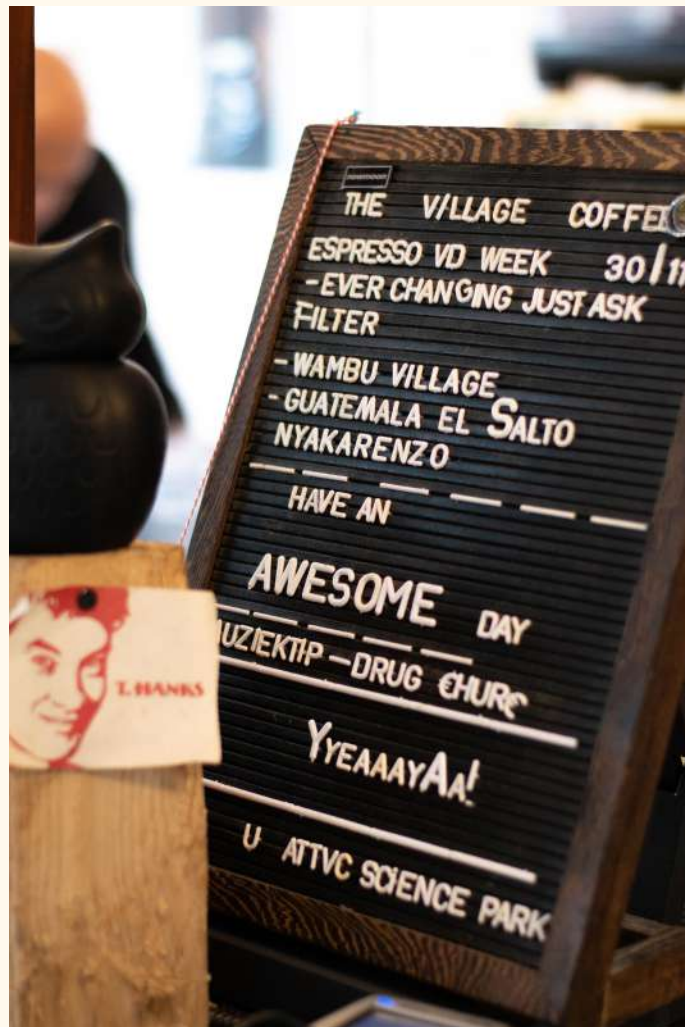 THE VILLAGE COFFEE
ESPRESSO VD WEEK 30/11
-EVER CHANGING JUST ASK
FILTER
-WAMBU VILLAGE
-GUATEMALA EL SALTO
NYAKARENZO
HAVE AN
AWESOME DAY
MUZIEKTIP-DRUG €HURC
YYEAAAYAA!
U ATTVC SCIENCE PARK
T.HANKS